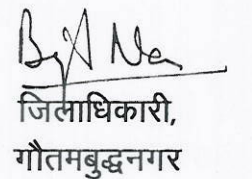 जिलाधिकारी,
गौतमबुद्धनगर